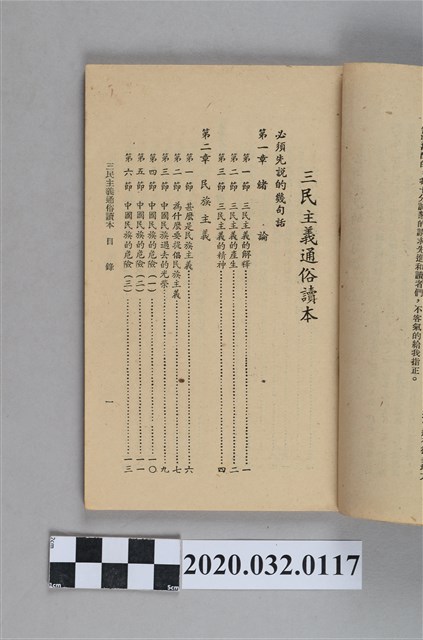 不客氣的給我指正。
三民主義通俗讀本
必須先説的幾句話
第一章 緒論
第一節 三民主義的解釋……一
第二節 三民主義的產生……二
第三節 三民主義的精神……四
第二章 民族主義
第一節 甚麼是民族主義……六
第二節 為什麼要提倡民族主義……七
第三節 中國民族過去的光榮……九
第四節 中國民族的危險(一)……一〇
第五節 中國民族的危險(二)……一一
第六節 中國民族的危險(三)……一三
三民主義通俗讀本 目錄 一
2cm
1cm
5cm
2020.032.0117